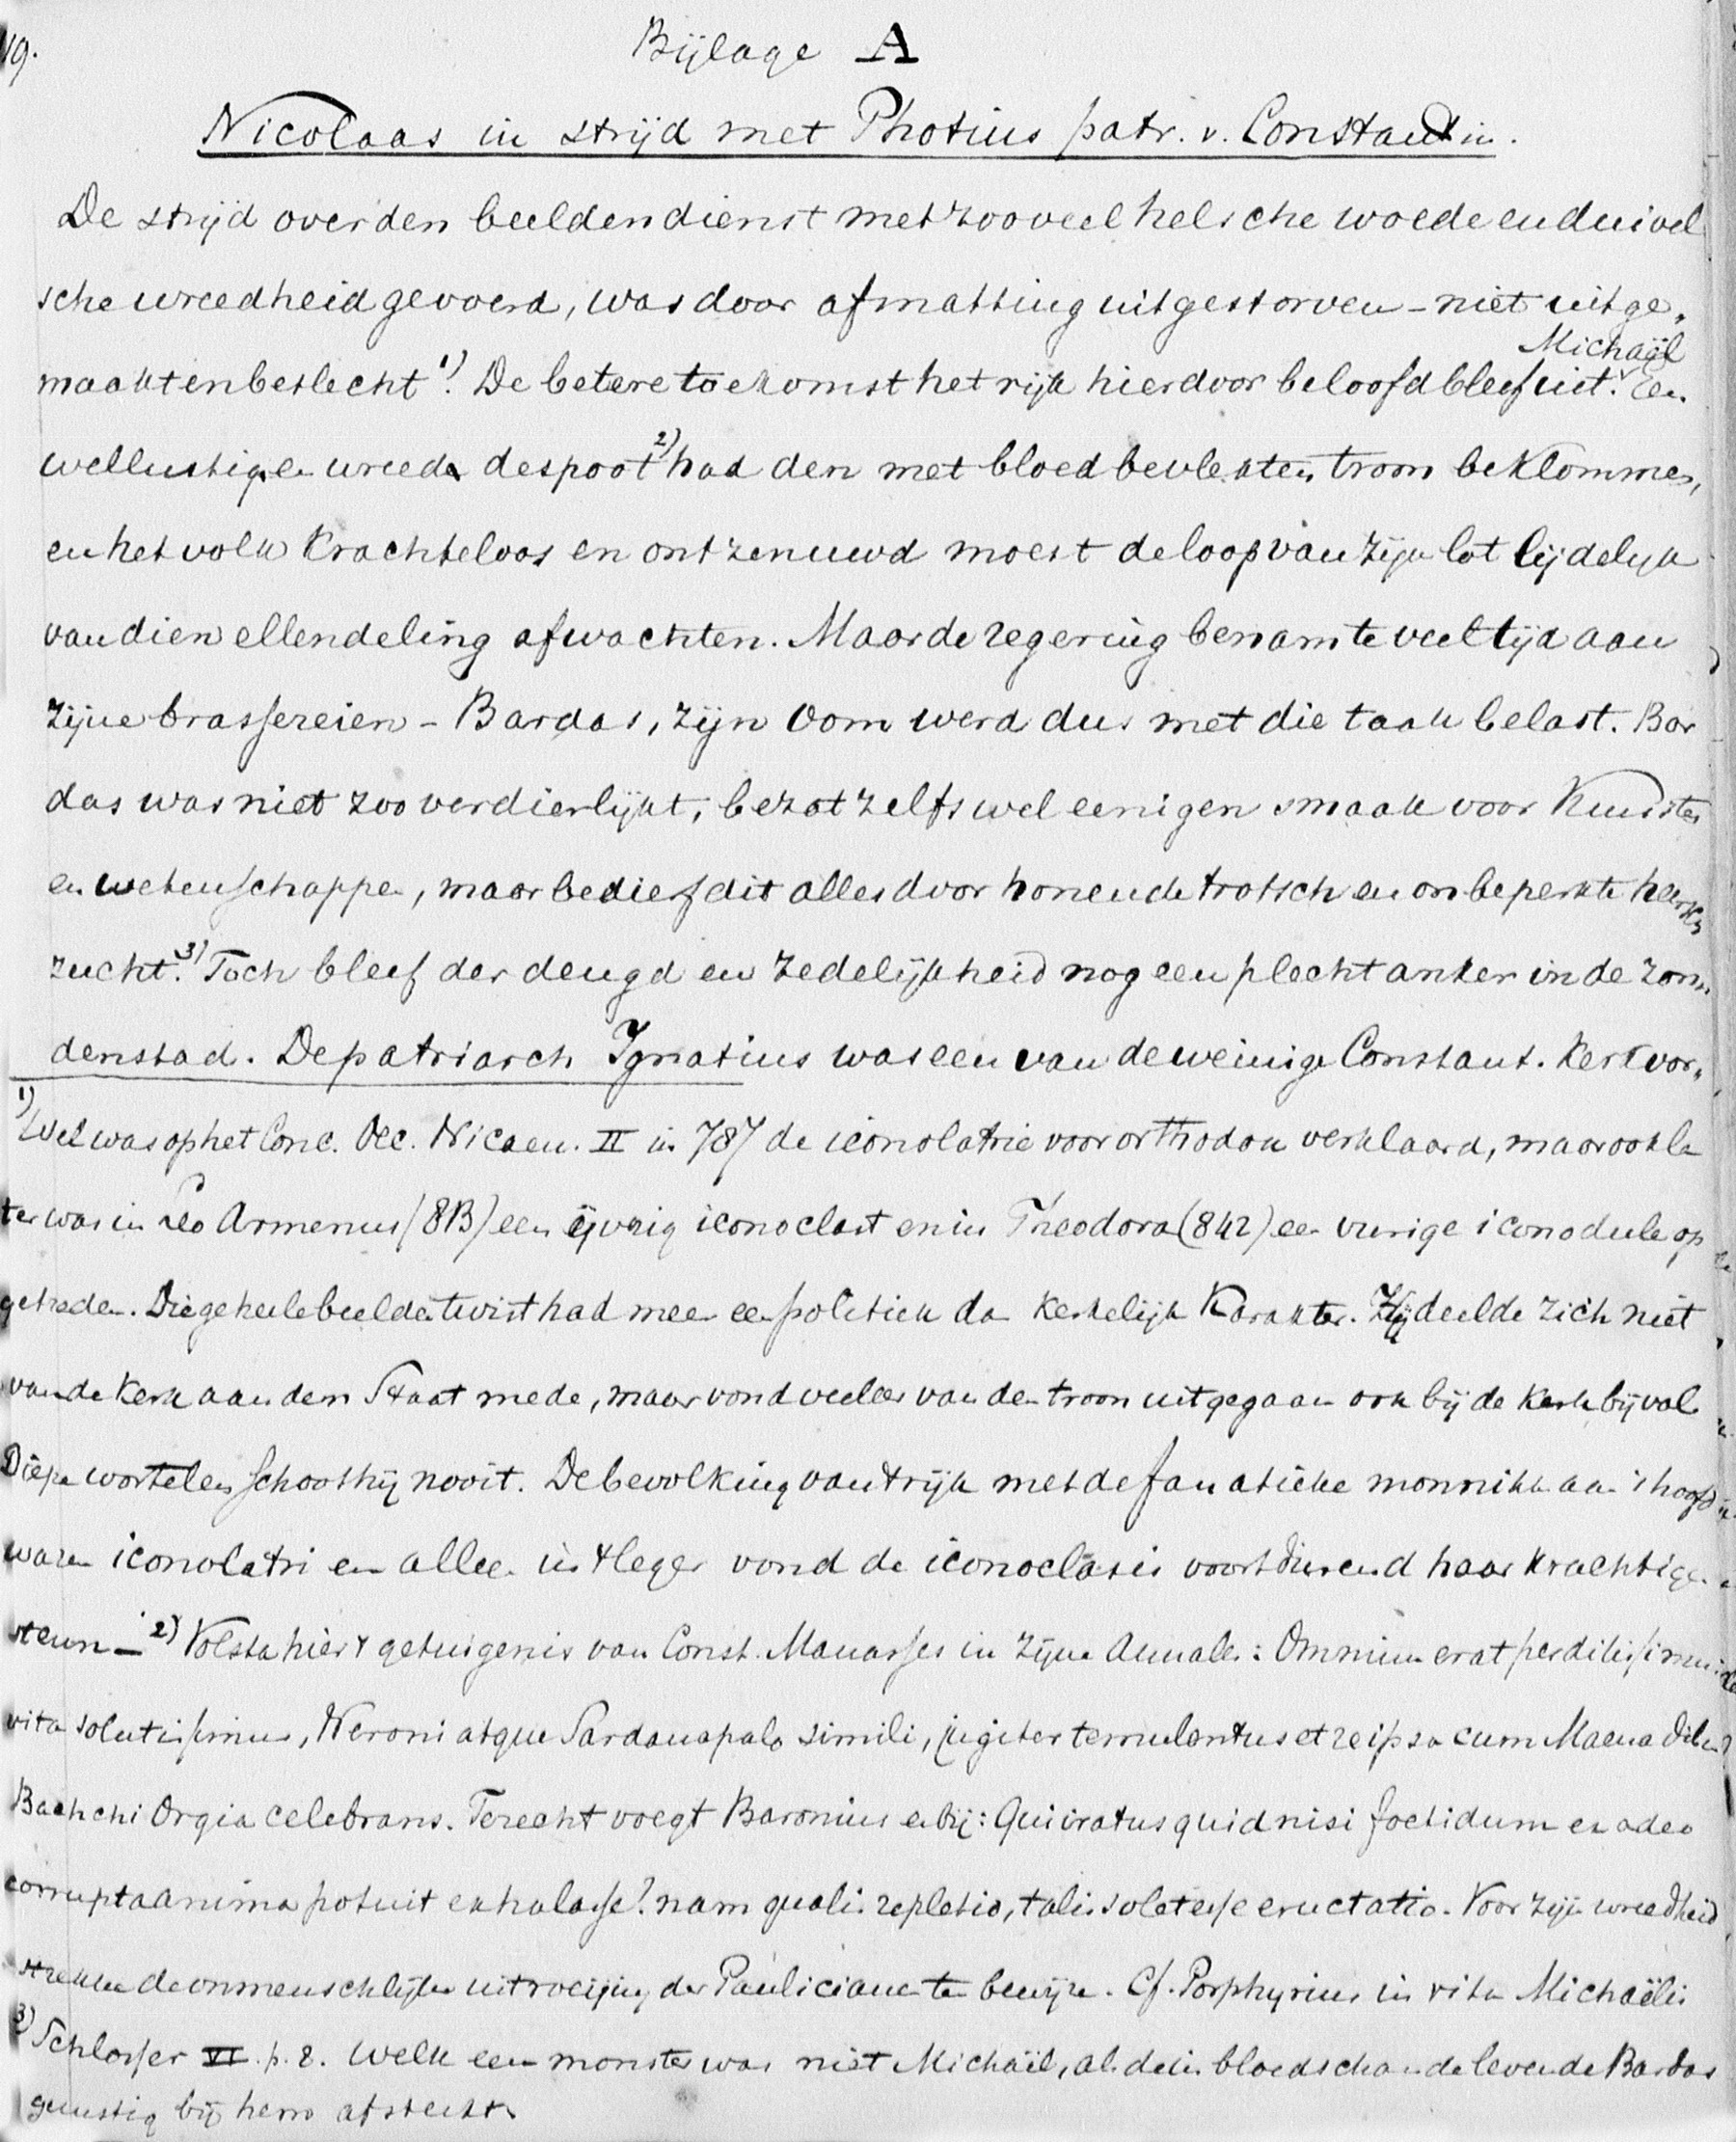 19.
Bijlage A
Nicolaas in strijd met Photius patr. v. Constantin.
De strijd over den beeldendienst met zooveel helsche woede en duivel
sche wreedheid gevoerd, was door afmatting uitgestorven – niet uitge„
Michaël
maakt en beslecht 1). De betere toekomst het rijk hierdoor beloofd bleef uit. Een
wellustig en wreed despoot 2) had den met bloed bevlekten troon beklommen,
en het volk krachteloos en ontzenuwd moest de loop van zijn lot lijdelijk
van dien ellendeling afwachten. Maar de regering benam te veel tijd aan
zijne brassereien – Bardas, zijn oom werd dus met die taak belast. Bar
das was niet zoo verdierlijkt, bezat zelfs wel eenigen smaak voor Kunsten
en wetenschappen, maar bedierf dit alles door honende trotsch en onbeperkte heersch
zucht. 3) Toch bleef der deugd en zedelijkheid nog een plechtanker in de zon„
denstad. De patriarch Ignatius was een van de weinige Constant. kerkvor„
1) Wel was op het Conc. Oec. Nicaen. II in 787 de iconolatrie voor orthodox verklaard, maar ook la
ter was in Leo Armenus (813) een ijvrig iconoclast en in Theodora (842) een vurige iconodule op
getreden. Die geheele beeldentwist had meer een politiek dan kerkelijk Karakter. Zij deelde zich niet
van de Kerk aan den Staat mede, maar vond veeleer van den troon uitgegaan ook bij de Kerk bijval
Diepe wortelen schoot hij nooit. De bevolking van 't rijk met de fanatieke monniken aan 't hoofd
waren iconolatri en alleen in 't leger vond de iconoclasis voortdurend haar krachtigen
steun – 2) Volsta hier 't getuigenis van Const. Manasses in zijne Annales: Omnium erat perditissimus
vita solutissimus, Neroni atque Sardanapalo simili, jugiter temulentus et reipsa cum Maenadibus
Bachchi Orgia celebrans. Terecht voegt Baronius er bij: Qui iratus quid nisi foetidum ex adeo
corrupta anima potuit exhalasse? nam qualis repletio, talis solet esse eructatio. Voor zijn wreedheid
strekke de onmenschlijke uitroeijing der Paulicianen ten bewijze. Cf. Porphyrius in vita Michaëlis
3) Schlosser VI. p. 2. Welk een monster was niet Michaël, als de in bloedschande levende Bardas
gunstig bij hem afsteekt.